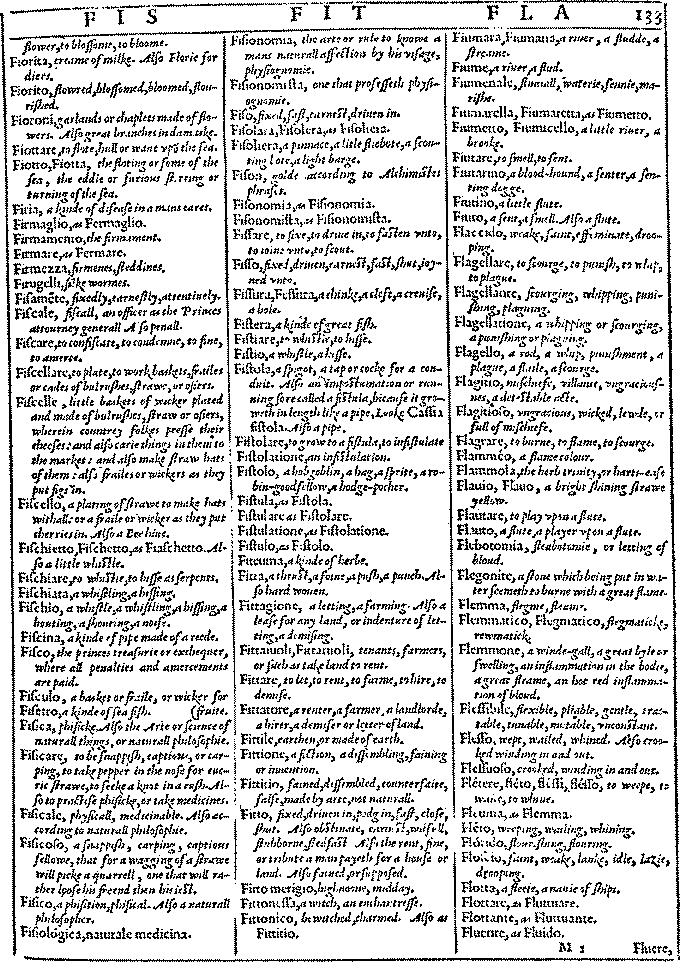 FIS FIT FLA 133
flower, to blossome, to bloome.
Fiorita, creame of milke. Also Florie for
diers.
Fiorito, flowred, blossomed, bloomed, flou-
rished.
Fioroni, garlands or chaplets made of flo-
wers. Also great branches in damaske.
Fiottare, to flote, hull or wave vpõ the sea.
Fiotto, Fiotta, the floting or fome of the
sea, the eddie or furious stirring or
turning of the sea.
Firia, a kinde of disease in a mans eares.
Firmaglio, as Fermaglio.
Firmamento, the firmament.
Firmare, as Fermare.
Firmezza, firmenes, steddines.
Firugelli, silke wormes.
Fisaméte, fixedly, earnestly, attentiuely.
Fiscale, fiscall, an officer as the Princes
attourney generall. Also penall.
Fiscare, to confiscate, to condemne, to fine,
to amerce.
Fiscellare, to plate, to work baskets, frailes
or cades of bulrushes, strawe, or osiers.
Fiscelle, little baskets of wicker plated
and made of bulrushes, straw or osiers,
wherein countrey folkes presse their
cheeses: and also carie things in them to
the market: and also make straw hats
of them: also frailes or wickers as they
put figs in.
Fiscello, a plating of strawe to make hats
withall: or a fraile or wicker as they put
cherries in. Also a Bee hiue.
Fischietto, Fischetto, as Fiaschetto. Al-
so a little whistle.
Fischiare, to whistle, to hisse as serpents.
Fischiata, a whistling, a hissing.
Fischio, a whistle, a whistling, a hissing, a
houting, a showting, a noise.
Fiscina, a kinde of pipe made of a reede.
Fisco, the princes treasurie or exchequer,
where all penalties and amercements
are paid.
Fisculo, a basket or fraile, or wicker for
Fisetro, a kinde of sea fish. (fruite.
Fisica, phisicke. Also the Arte or science of
naturall things, or naturall philosophie.
Fisicare, to be snappish, captious, or car-
ping, to take pepper in the nose for eue-
rie strawe, to seeke a knot in a rush. Al-
so to practise phisicke, or take medicines.
Fisicale, physicall, medicinable. Also ac-
cording to naturall philosophie.
Fisicoso, a snappish, carping, captious
fellowe, that for a wagging of a strawe
will picke a quarrell, one that will ra-
ther lose his freend then his iest.
Fisico, a phisition, phisical. Also a naturall
philosopher.
Fisiológica, naturale medicina.
Fisionomia, the arte or rule to knowe a
mans naturall affection by his visage,
physiognomie.
Fisionomista, one that professeth physi-
ognomie.
Fiso, fixed, fast, earnest, driuen in.
Fisolara, Fisolera, as Fisoliera.
Fisoliera, a pinnace, a litle fliebote, a scou-
ting bote, a light barge.
Fison, golde according to Alchimistes
phrases.
Fisonomia, as Fisionomia.
Fisonomista, as Fisionomista.
Fissare, to fixe, to driue in, to fasten vnto,
to ioine vnto, to scout.
Fisso, fixed, driuen, earnest, fast, shut, ioy-
ned vnto.
Fissura, Fessura, a chinke, a cleft, a creuise,
a hole.
Fistera, a kinde of great fish.
Fistiare, to whistle, to hisse.
Fistio, a whistle, a hisse.
Fistola, a spigot, a tap or cocke for a con-
duit. Also an impostumation or run-
ning sore called a fistula, bicause it gro-
weth in length like a pipe, Looke Cassia
fistola. Also a pipe.
Fistolare, to grow to a fistula, to infistulate
Fistolatione, an infistulation.
Fistolo, a hobgoblin, a hag, a sprite, a ro-
bin-goodfellow, a hodge-pocher.
Fistula, as Fistola.
Fistulare as Fistolare.
Fistulatione, as Fistolatione.
Fistulo, as Fistolo.
Fiteuma, a kinde of herbe.
Fitta, a thrust, a foine, a push, a punch. Al-
so hard wouen.
Fittagione, a letting, a farming. Also a
lease for any land, or indenture of let-
ting, a demising.
Fittaiuoli, Fittaruoli, tenants, farmers,
or such as take land to rent.
Fittare, to let, to rent, to farme, to hire, to
demise.
Fittatore, a renter, a farmer, a landlorde,
a hirer, a demiser or letter of land.
Fittile, earthen, or made of earth.
Fittione, a fiction, a dissembling, faining
or inuention.
Fittitio, fained, dissembled, counterfaite,
false, made by arte, not naturall.
Fitto, fixed, driuen in, podg in, fast, close,
shut. Also obstinate, earnest, wilfull,
stubborne, stedfast. Also the rent, fine,
or tribute a man payeth for a house or
land. Also fained, or supposed.
Fitto merigio, high noone, midday.
Fittonessa, a witch, an enchantresse.
Fittonico, bewitched, charmed. Also as
Fittitio.
Fiumara, Fiumana, a riuer, a fludde, a
streame.
Fiume, a riuer, a flud.
Fiumenale, fluuiall, waterie, fennie, ma-
rishe.
Fiumarella, Fiumaretta, as Fiumetto.
Fiumetto, Fiumicello, a little riuer, a
brooke.
Fiutare, to smell, to sent.
Fiutarino, a blood-hound, a senter, a sen-
ting dogge.
Fiutino, a little flute.
Fiuto, a sent, a smell. Also a flute.
Flaccido, weake, faint, effeminate, droo-
ping.
Flagellare, to scourge, to punish, to whip,
to plague.
Flagellante, scourging, whipping, puni-
shing, plaguing.
Flagellatione, a whipping or scourging,
a punishing or plaguing.
Flagello, a rod, a whip, punishment, a
plague, a flaile, a scourge.
Flagitio, mischiefe, villanie, vngracious-
nes, a detestable acte.
Flagitioso, vngracious, wicked, lewde, or
full of mischiefe.
Flagrare, to burne, to flame, to scourge.
Flamméo, a flame colour.
Flammola, the herb trinity, or harts-ease
Flauio, Flauo, a bright shining strawe
yellow.
Flautare, to play vpon a flute.
Flauto, a flute, a player vpon a flute.
Flebotomia, fleabotomie, or letting of
bloud.
Flegonite, a stone which being put in wa-
ter seemeth to burne with a great flame.
Flemma, flegme, fleame.
Flemmatico, Flegmatico, flegmaticke,
rewmatick.
Flemmone, a winde-gall, a great byle or
swelling, an inflammation in the bodie,
a great fleame, an hot red inflamma-
tion of bloud.
Flessibile, flexible, pliable, gentle, trac-
table, tunable, mutable, vnconstant.
Flesso, wept, wailed, whined. Also croo-
ked winding in and out.
Flessuoso, crooked, winding in and out.
Flétere, fléto, fléssi, flésso, to weepe, to
waile, to whine.
Fleuma, as Flemma.
Fléto, weeping, wailing, whining.
flourishing, flouring.
faint, weak, lanke, idle, lazie,
drooping.
Flotta, a fleete, a nauie of ships.
Flottare, as Fluttuare.
Flottante, as Fluttuante.
Fluente, as Fluido.
M 1 Fluere,